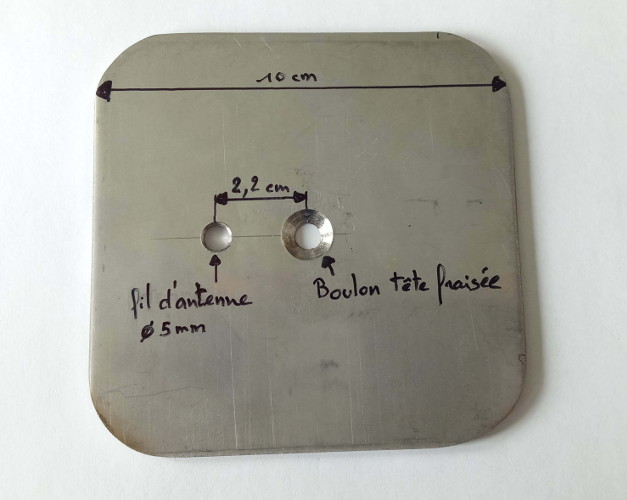 10 cm
2,2 cm
fil d'antenne
ø 5 mm
Boulon tête fraisée